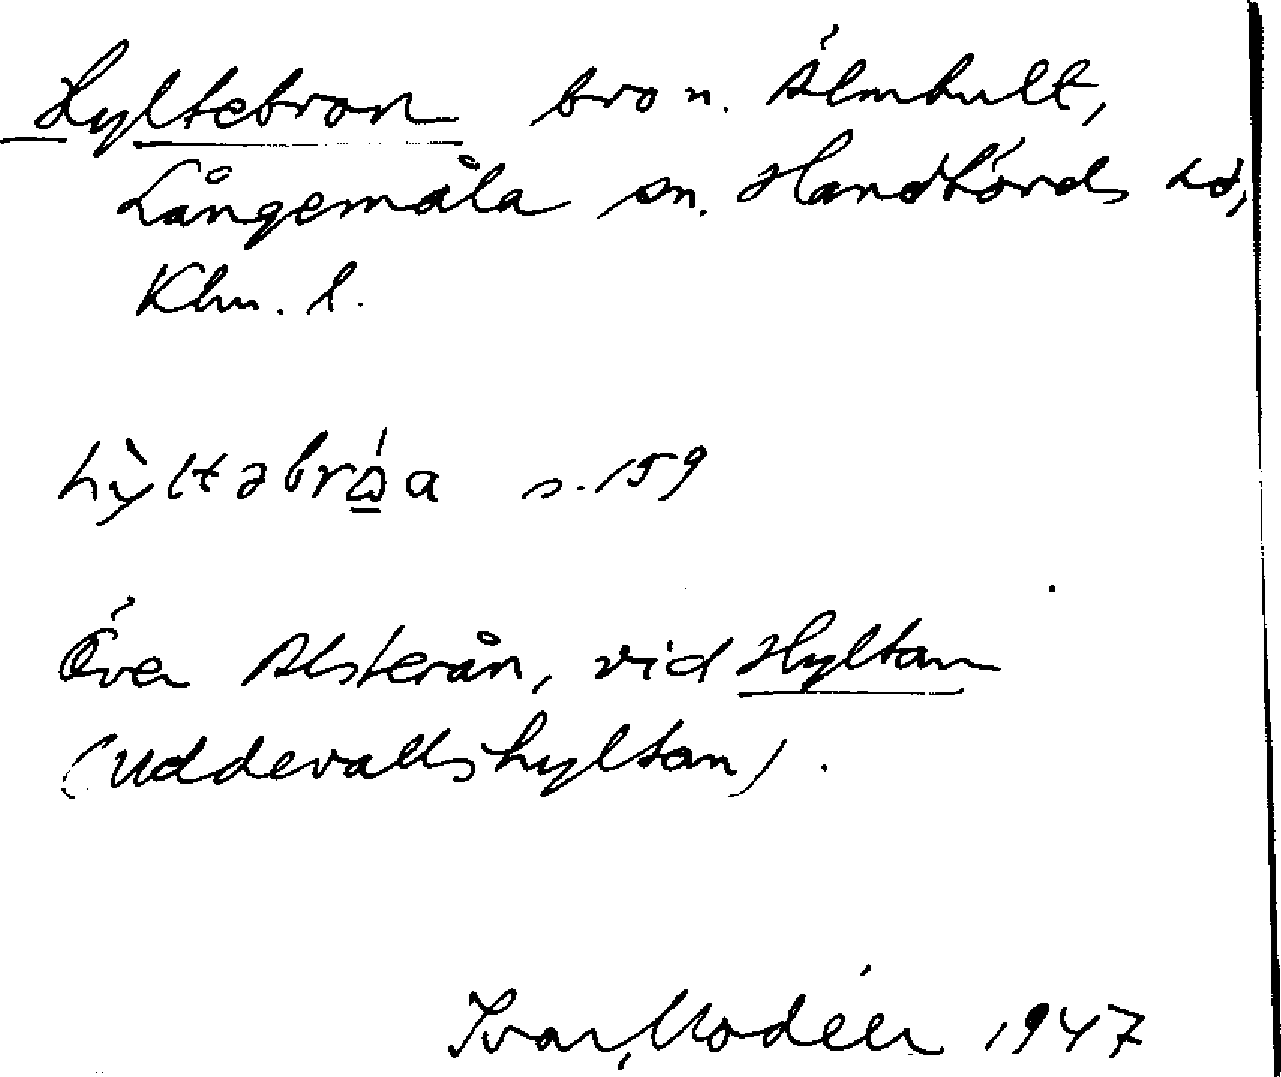 Hyltebron bro n. Älmhult,
Långemåla sn. Handbörds hd,
Klm. l.
s. 159
Över Alsterån, vid Hyltan
(Uddevallshyltan).
Ivar Modéer 1947